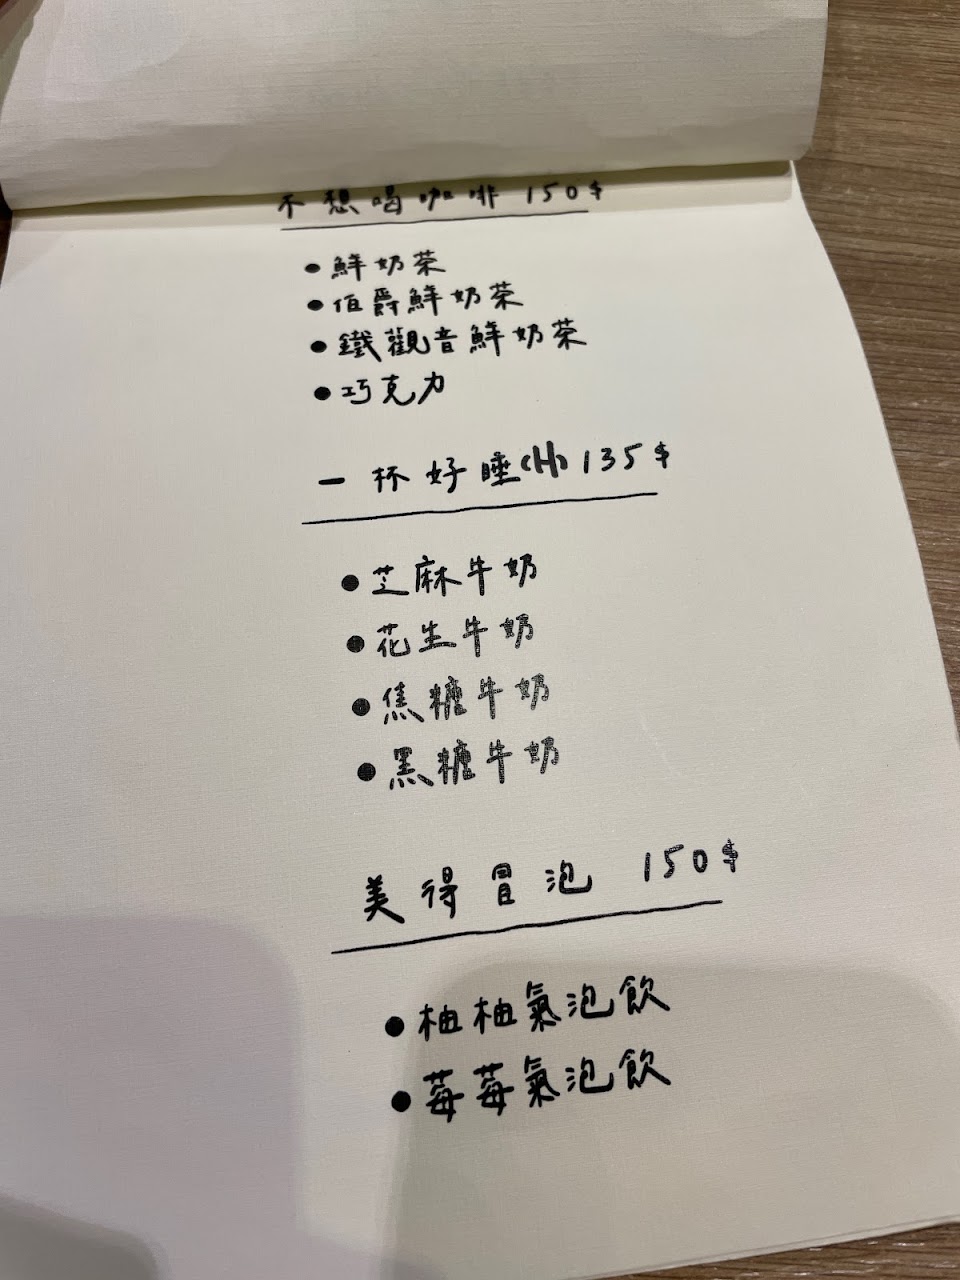 不想喝咖啡 150$
●鮮奶茶
●伯爵鮮奶茶
●鐵觀音鮮奶茶
●巧克力
一杯好睡(H)135$
●芝麻牛奶
●花生牛奶
●焦糖牛奶
●黑糖牛奶
美得冒泡 150$
●柚柚氣泡飲
●莓莓氣泡飲